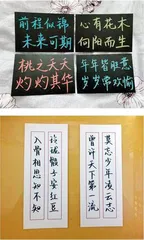 前程似锦
未来可期
心有花木
向阳而生
桃之夭夭
灼灼其华
年年皆胜意
岁岁常欢愉
玲珑骰子安红豆
入骨相思知不知
莫忘少年凌云志
曾许天下第一流